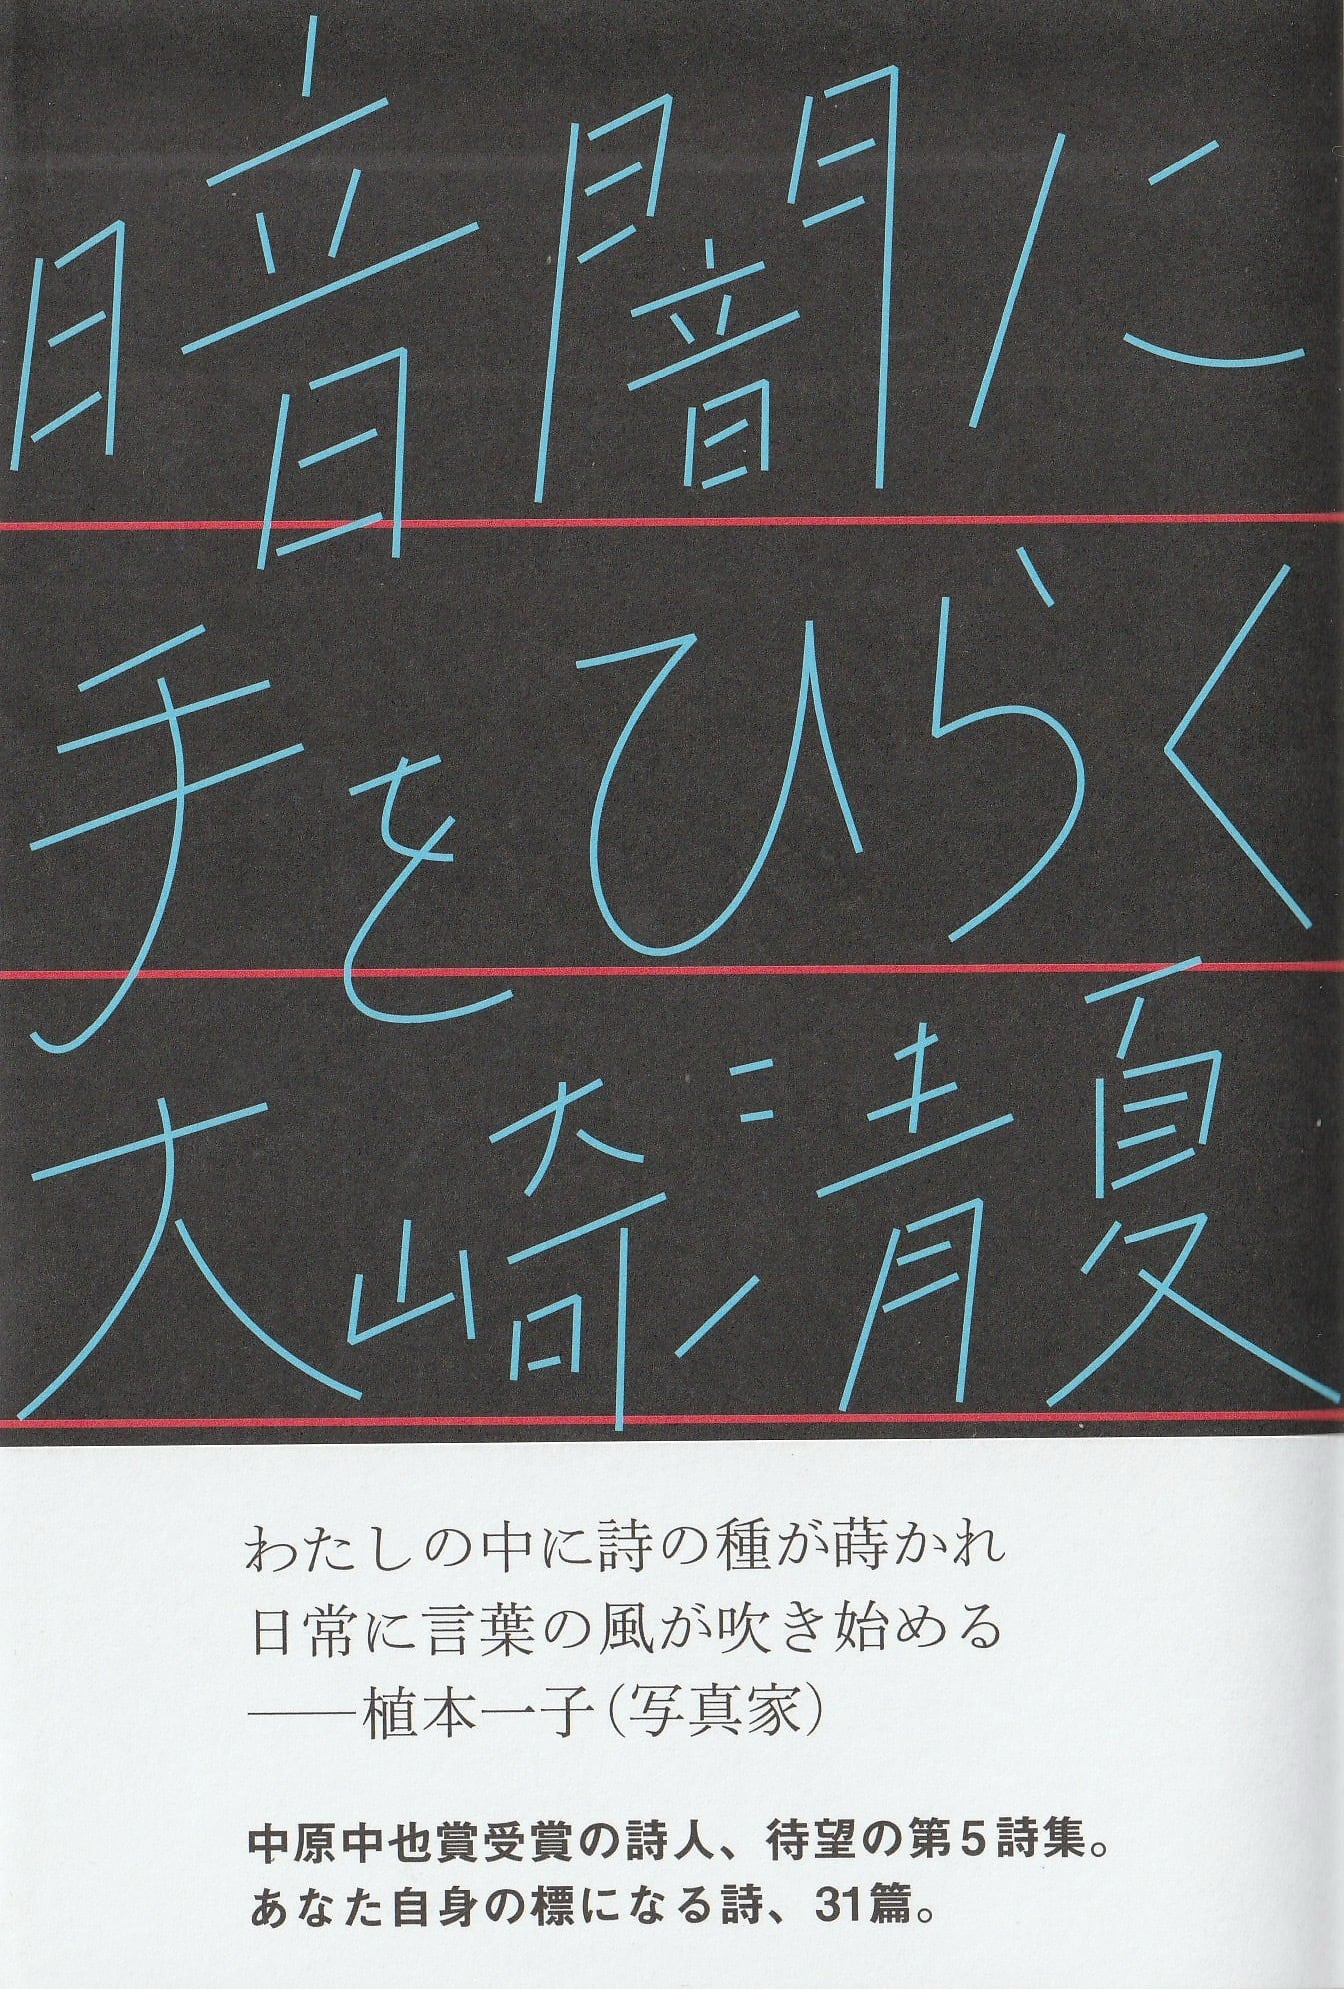 暗闇に
手をひらく
大崎清夏
わたしの中に詩の種が蒔かれ
日常に言葉の風が吹き始める
――植本一子（写真家）
中原中也賞受賞の詩人、待望の第5詩集。
あなた自身の標になる詩、31篇。